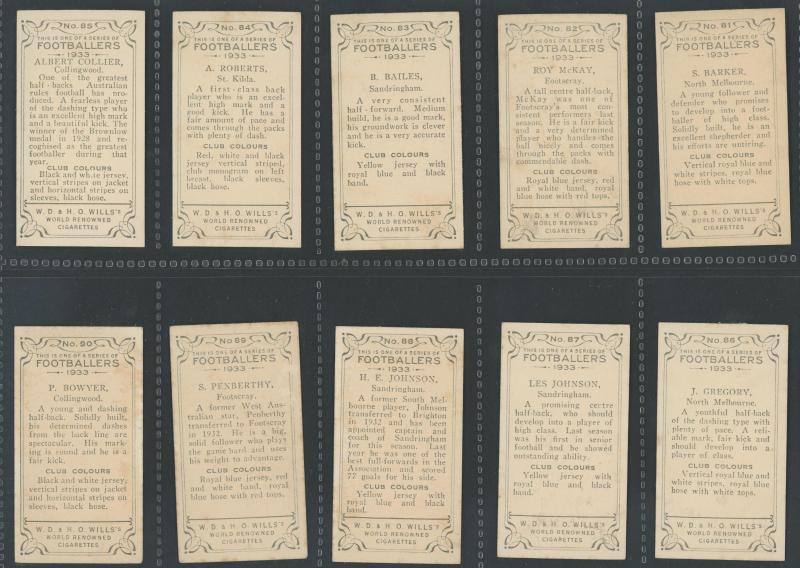 No. 85
THIS IS ONE OF A SERIES OF
FOOTBALLERS
1933
ALBERT COLLIER,
Collingwood.
One of the greatest
half-backs Australian
rules football has pro-
duced. A fearless player
of the dashing type who
is an excellent high mark
and a beautiful kick. The
winner of the Brownlow
medal in 1928 and re-
cognised as the greatest
footballer during that
year.
CLUB COLOURS
Black and white jersey,
vertical stripes on jacket
and horizontal stripes on
sleeves, black hose.
W. D. & H. O. WILLS's
WORLD RENOWNED
CIGARETTES
No. 84
THIS IS ONE OF A SERIES OF
FOOTBALLERS
1933
A. ROBERTS,
St. Kilda.
A first-class back
player who is an excel-
lent high mark and a
good kick. He has a
fair amount of pace and
comes through the packs
with plenty of dash.
CLUB COLOURS
Red, white and black
jersey vertical striped,
club monogram on left
breast, black sleeves,
black hose.
W. D. & H. O. WILLS's
WORLD RENOWNED
CIGARETTES
No. 83
THIS IS ONE OF A SERIES OF
FOOTBALLERS
1933
B. BAILES,
Sandringham.
A very consistent
half-forward. Medium
build, he is a good mark,
his groundwork is clever
and he is a very accurate
kick.
CLUB COLOURS
Yellow jersey with
royal blue and black
band.
W. D. & H. O. WILLS's
WORLD RENOWNED
CIGARETTES
No. 82
THIS IS ONE OF A SERIES OF
FOOTBALLERS
1933
ROY McKAY,
Footscray.
A tall centre half-back,
McKay was one of
Footscray's most con-
sistent performers last
season. He is a fair kick
and a very determined
player who handles the
ball nicely and comes
through the packs with
commendable dash.
CLUB COLOURS
Royal blue jersey, red
and white band, royal
blue hose with red tops.
W. D. & H. O. WILLS's
WORLD RENOWNED
CIGARETTES
No. 81
THIS IS ONE OF A SERIES OF
FOOTBALLERS
1933
S. BARKER,
North Melbourne.
A young follower and
defender who promises
to develop into a foot-
baller of high class.
Solidly built, he is an
excellent shepherder and
his efforts are untiring.
CLUB COLOURS
Vertical royal blue and
white stripes, royal blue
hose with white tops.
W. D. & H. O. WILLS's
WORLD RENOWNED
CIGARETTES
No. 90
THIS IS ONE OF A SERIES OF
FOOTBALLERS
1933
P. BOWYER,
Collingwood.
A young and dashing
half-back. Solidly built,
his determined dashes
from the back line are
spectacular. His mark-
ing is sound and he is a
fair kick.
CLUB COLOURS
Black and white jersey,
vertical stripes on jacket
and horizontal stripes on
sleeves, black hose.
W. D. & H. O. WILLS's
WORLD RENOWNED
CIGARETTES
No 89
THIS IS ONE OF A SERIES OF
FOOTBALLERS
1933
S. PENBERTHY,
Footscray.
A former West Aus-
tralian star, Penberthy
transferred to Footscray
in 1932. He is a big,
solid follower who plays
the game hard and uses
his weight to advantage.
CLUB COLOURS
Royal blue jersey, red
and white band, royal
blue hose with red tops.
W. D. & H. O. WILLS's
WORLD RENOWNED
CIGARETTES
No. 88
THIS IS ONE OF A SERIES OF
FOOTBALLERS
1933
H. E. JOHNSON,
Sandringham.
A former South Mel-
bourne player, Johnson
transferred to Brighton
in 1932 and has been
appointed captain and
coach of Sandringham
for this season. Last
year he was one of the
best full-forwards in the
Association and scored
77 goals for his side.
CLUB COLOURS
Yellow jersey with
royal blue and black
band.
W. D. & H. O. WILLS's
WORLD RENOWNED
CIGARETTES
No. 87
THIS IS ONE OF A SERIES OF
FOOTBALLERS
1933
LES JOHNSON,
Sandringham.
A promising centre
half-back, who should
develop into a player of
high class. Last season
was his first in senior
football and he showed
outstanding ability.
CLUB COLOURS
Yellow jersey with
royal blue and black
band.
W. D. & H. O. WILLS's
WORLD RENOWNED
CIGARETTES
No. 86
THIS IS ONE OF A SERIES OF
FOOTBALLERS
1933
J. GREGORY,
North Melbourne.
A youthful half-back
of the dashing type with
plenty of pace. A reli-
able mark, fair kick and
should develop into a
player of class.
CLUB COLOURS
Vertical royal blue and
white stripes, royal blue
hose with white tops.
W. D. & H. O. WILLS's
WORLD RENOWNED
CIGARETTES